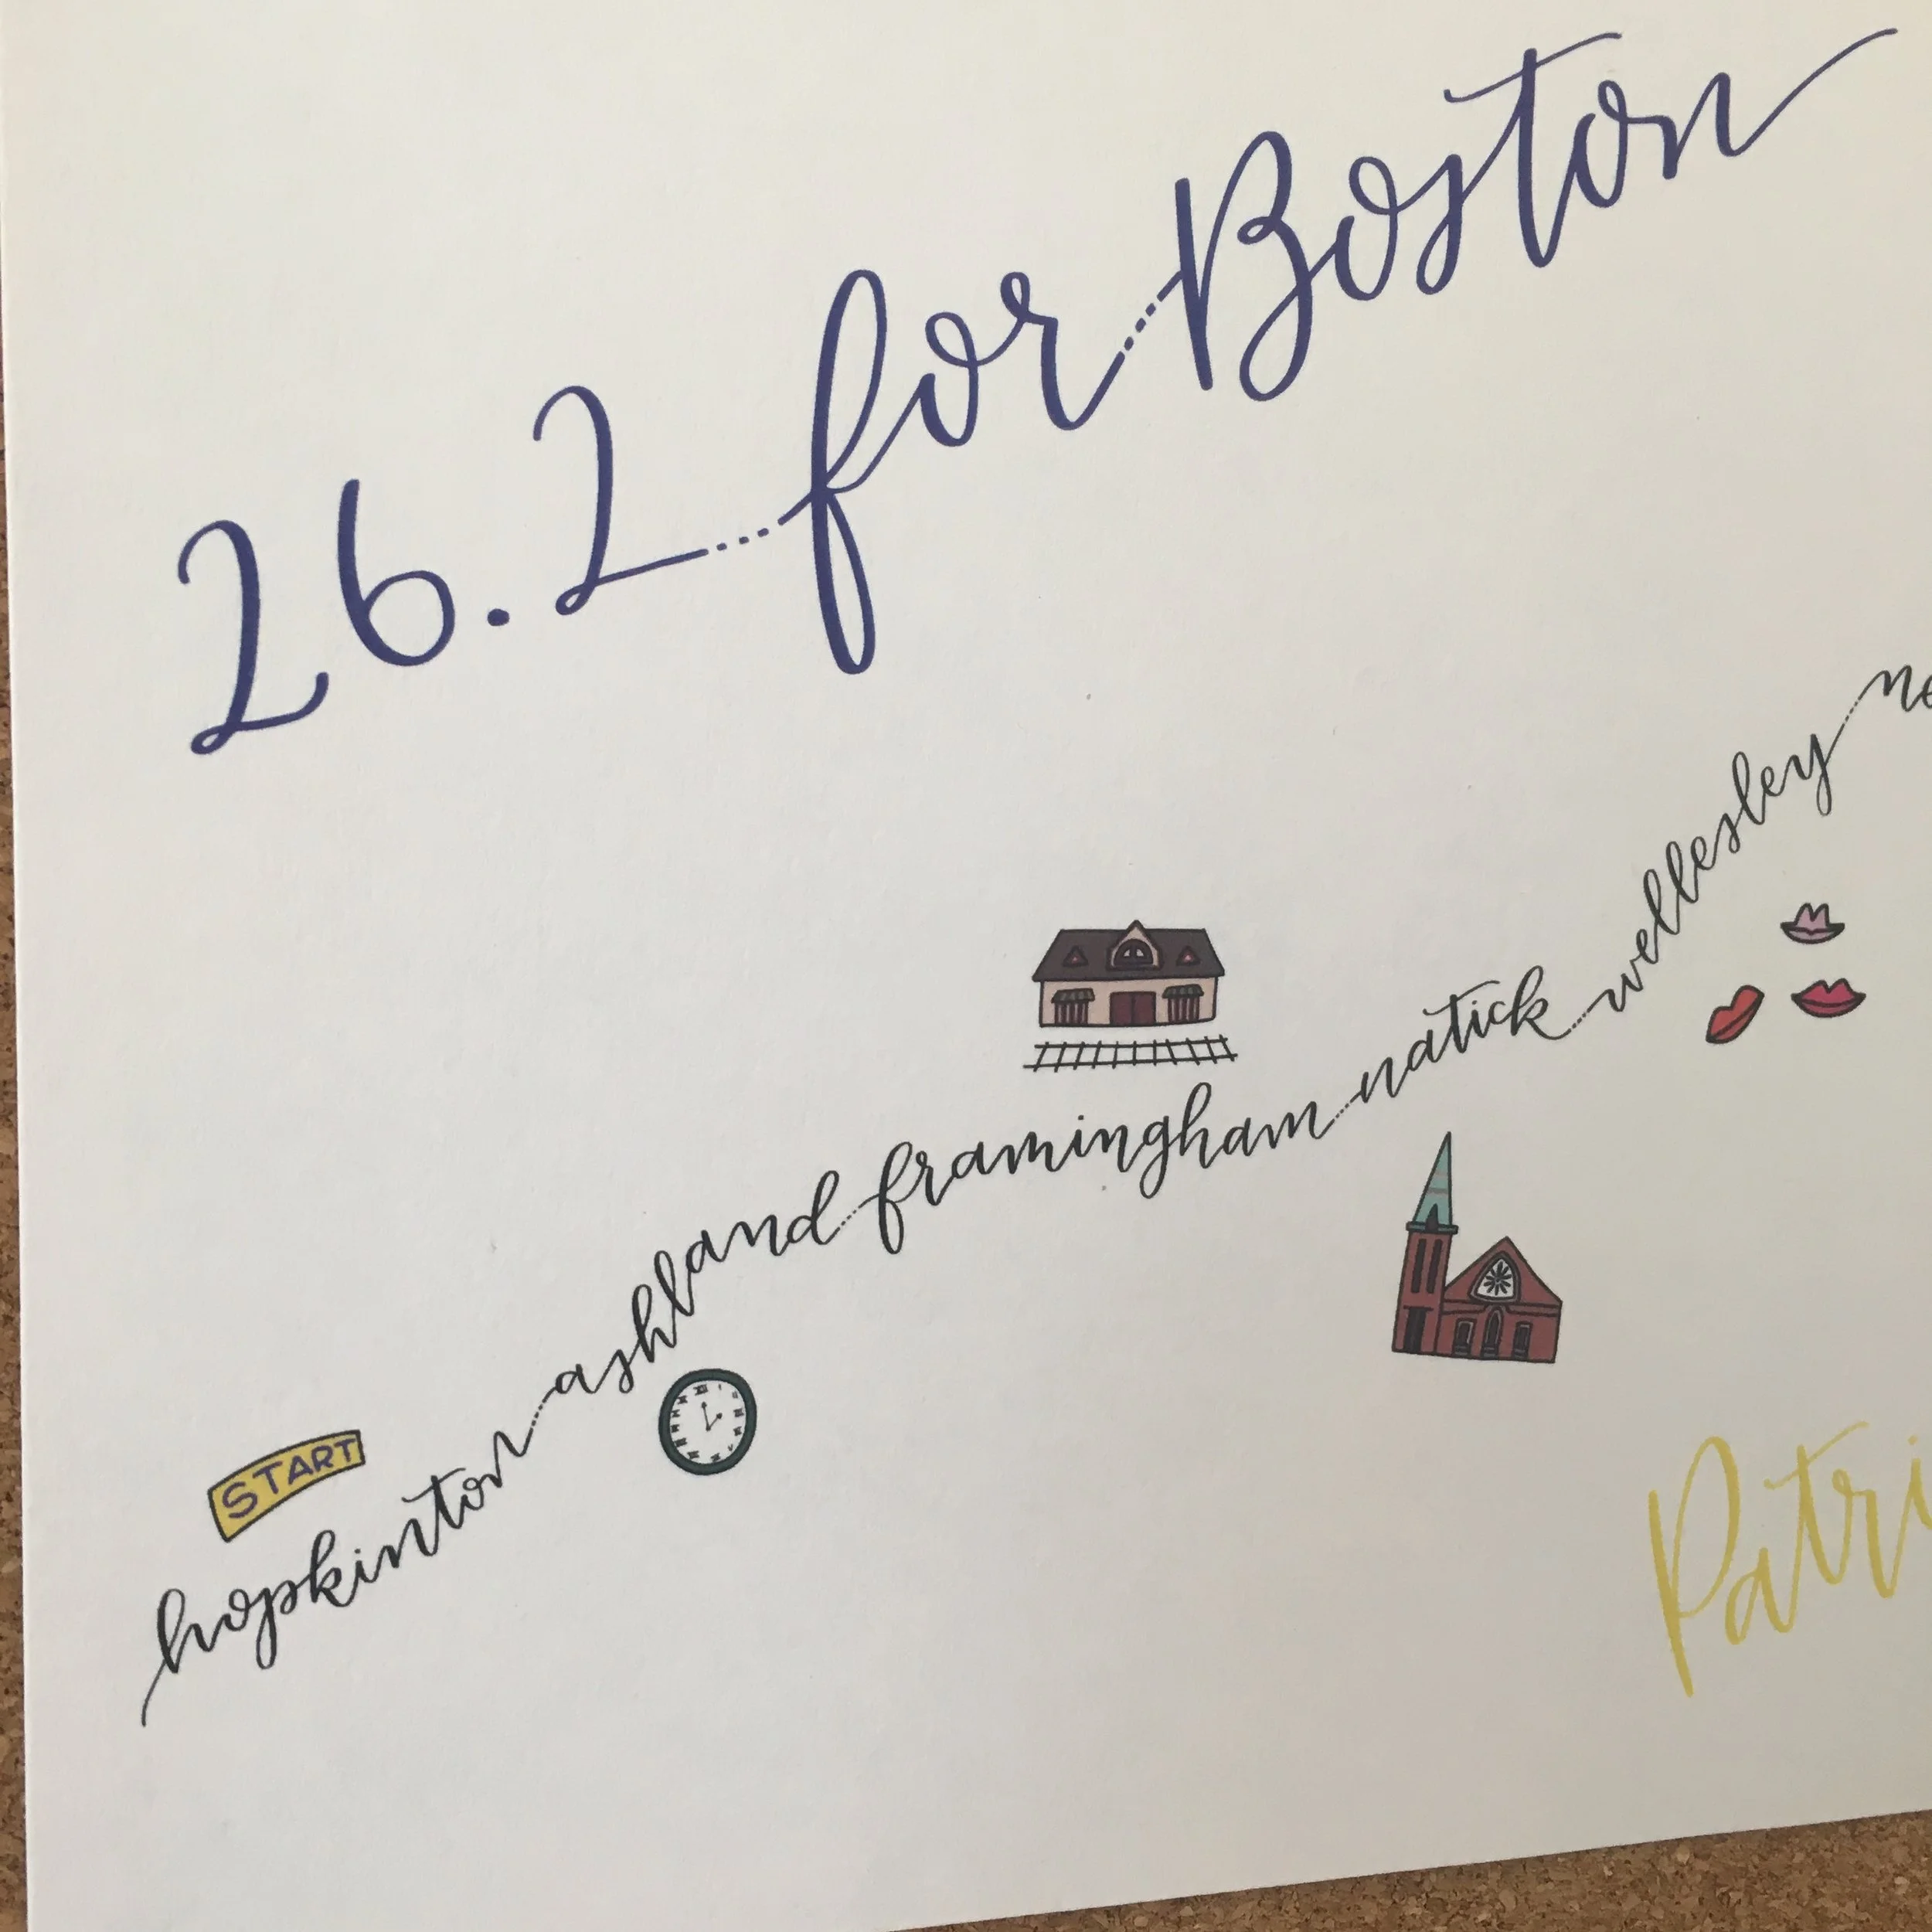 26.2 for Boston
START
hopkinton ashland framingham natick wellesley ne
Patri